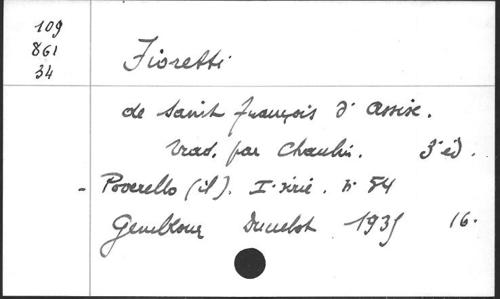 109
861
34
Fioretti
de saint françois d'assise.
trad. par Chaulin. 3e éd.
- Poverello (il). I. série. n° 54
Gembloux Duculot 1935 16.